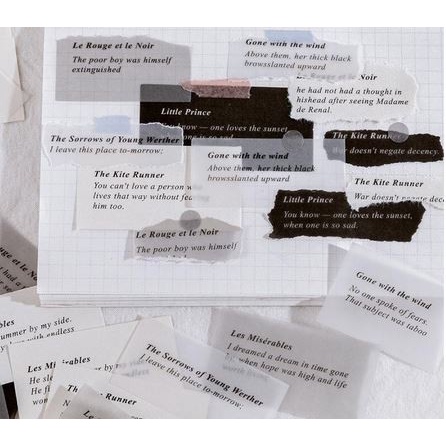 Le Rouge et le Noir
The poor boy was himself
extinguished
Gone with the wind
Above them, her thick black
browsslanted upward
he had not had a thought in
hishead after seeing Madame
de Renal.
Little Prince
know — one loves the sunset
The Kite Runner
War doesn't negate decency.
The Sorrows of Young Werther
I leave this place to-morrow;
Gone with the wind
Above them, her thick black
browsslanted upward
The Kite Runner
You can't love a person w
lives that way without fea
him too.
The Kite Runner
War doesn't negate dece
Little Prince
You know — one loves the sunset,
when one is so sad.
Le Rouge et le Noir
The poor boy was himself
Gone with the wind
No one spoke of fears.
That subject was taboo
ummer by my side.
with endless
Les Misérables
I dreamed a dream in time gone
when hope was high and life
The Sorrows of Young Werther
I leave this place to-morrow;
Les Mi rables
He sle
Runner